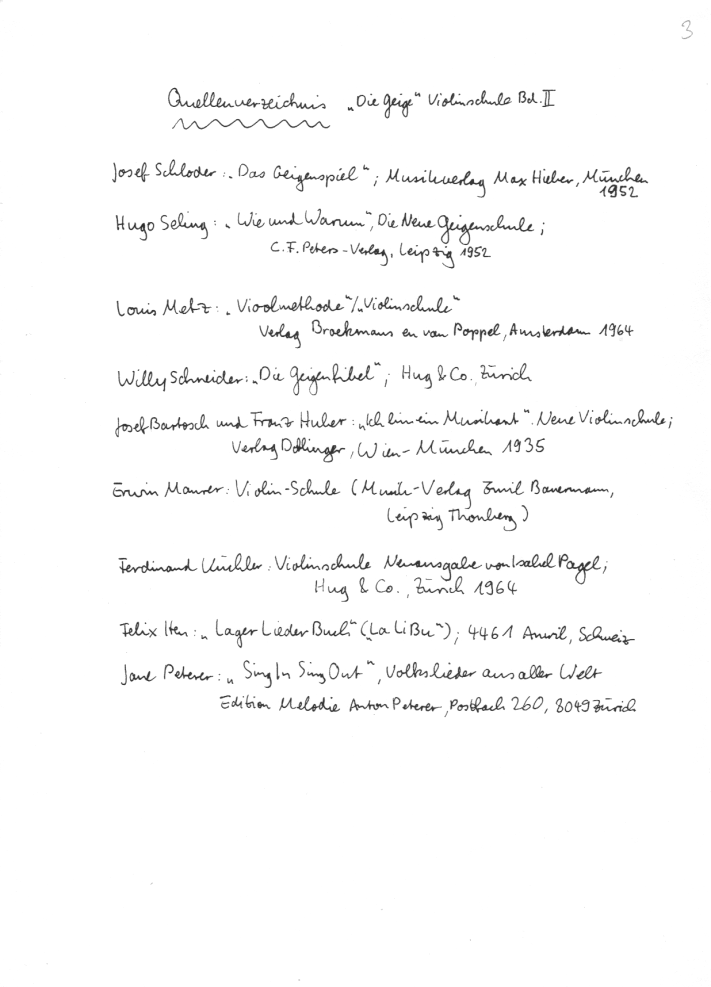 3
Quellenverzeichnis „Die Geige" Violinschule Bd. II
Josef Schloder: „Das Geigenspiel"; Musikverlag Max Hieber, München
1952
Hugo Seling: „Wie und Warum", Die Neue Geigenschule;
C. F. Peters-Verlag, Leipzig 1952
Louis Metz: „Vioolmethode"/„Violinschule"
Verlag Broekmans en van Poppel, Amsterdam 1964
Willy Schneider: „Die Geigenfibel"; Hug & Co., Zürich
Josef Bartosch und Franz Huber: „Ich bin ein Musikant". Neue Violinschule;
Verlag Doblinger, Wien-München 1935
Erwin Maurer: Violin-Schule (Musik-Verlag Emil Bauermann,
Leipzig Thonberg)
Ferdinand Küchler: Violinschule Neuausgabe von Isabel Pagel;
Hug & Co., Zürich 1964
Felix Iten: „Lager Lieder Buch" („La Li Bu"); 4461 Anwil, Schweiz
Jane Peterer: „Sing In Sing Out", Volkslieder aus aller Welt
Edition Melodie Anton Peterer, Postfach 260, 8049 Zürich